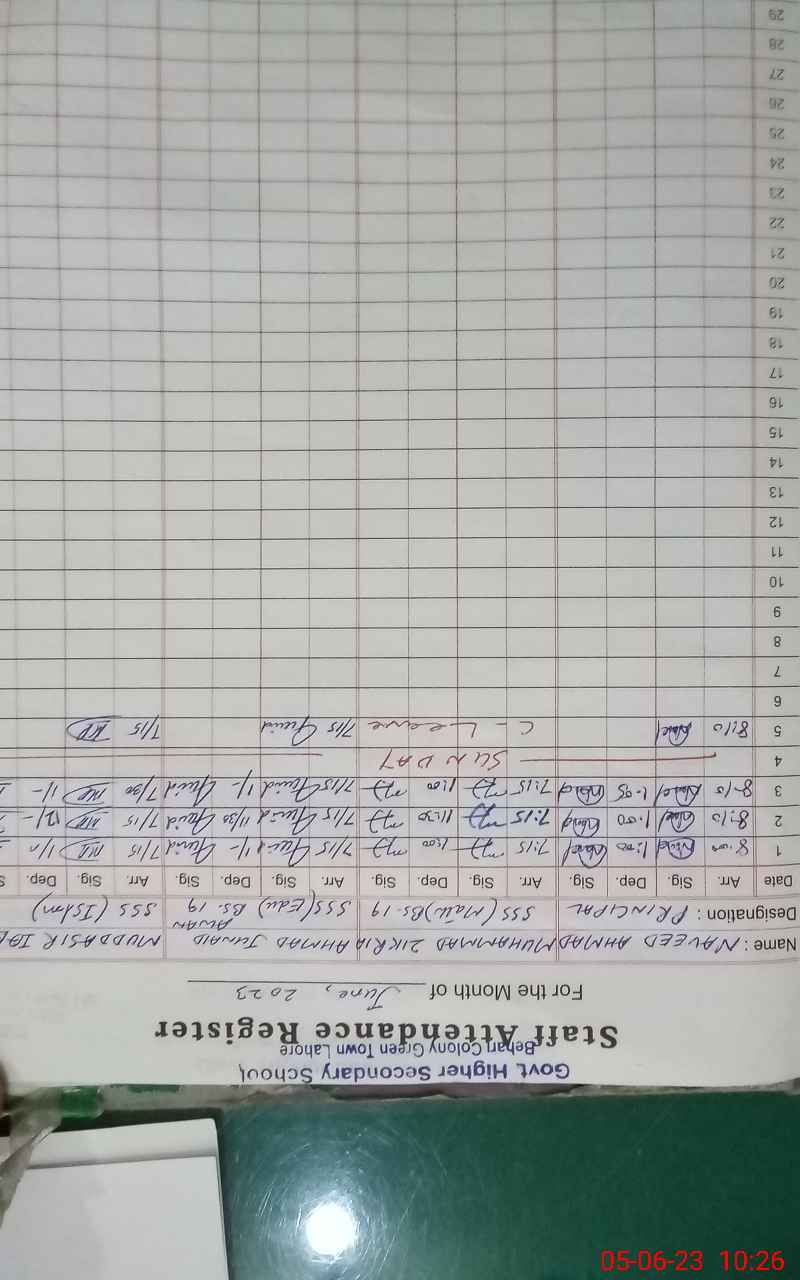 Govt. Higher Secondary School
Behari Colony Green Town Lahore
Staff Attendance Register
For the Month of June, 2023
Name : NAVEED AHMAD MUHAMMAD ZIKRIA AHMAD JUNAID AWAN MUDDASIR
Designation : PRINCIPAL SSS (Math) BS.19 SSS (Edu) BS.19 SSS (Islm)
Date Arr. Sig. Dep. Sig. Arr. Sig. Dep. Sig. Arr. Sig. Dep. Sig. Arr. Sig. Dep. S
1 8:00 1:00 7:15 1:00 7/15 1/- 7/15
2 8:10 1:00 7:15 11:30 7/15 11/30 7/15 12/-
3 8-10 1:05 7:15 1:00 7/15 1/- 7/30 1/-
4 SUNDAY
5 8:10 C-Leave 7/15 7/15
6
7
8
9
10
11
12
13
14
15
16
17
18
19
20
21
22
23
24
25
26
27
28
29
05-06-23 10:26